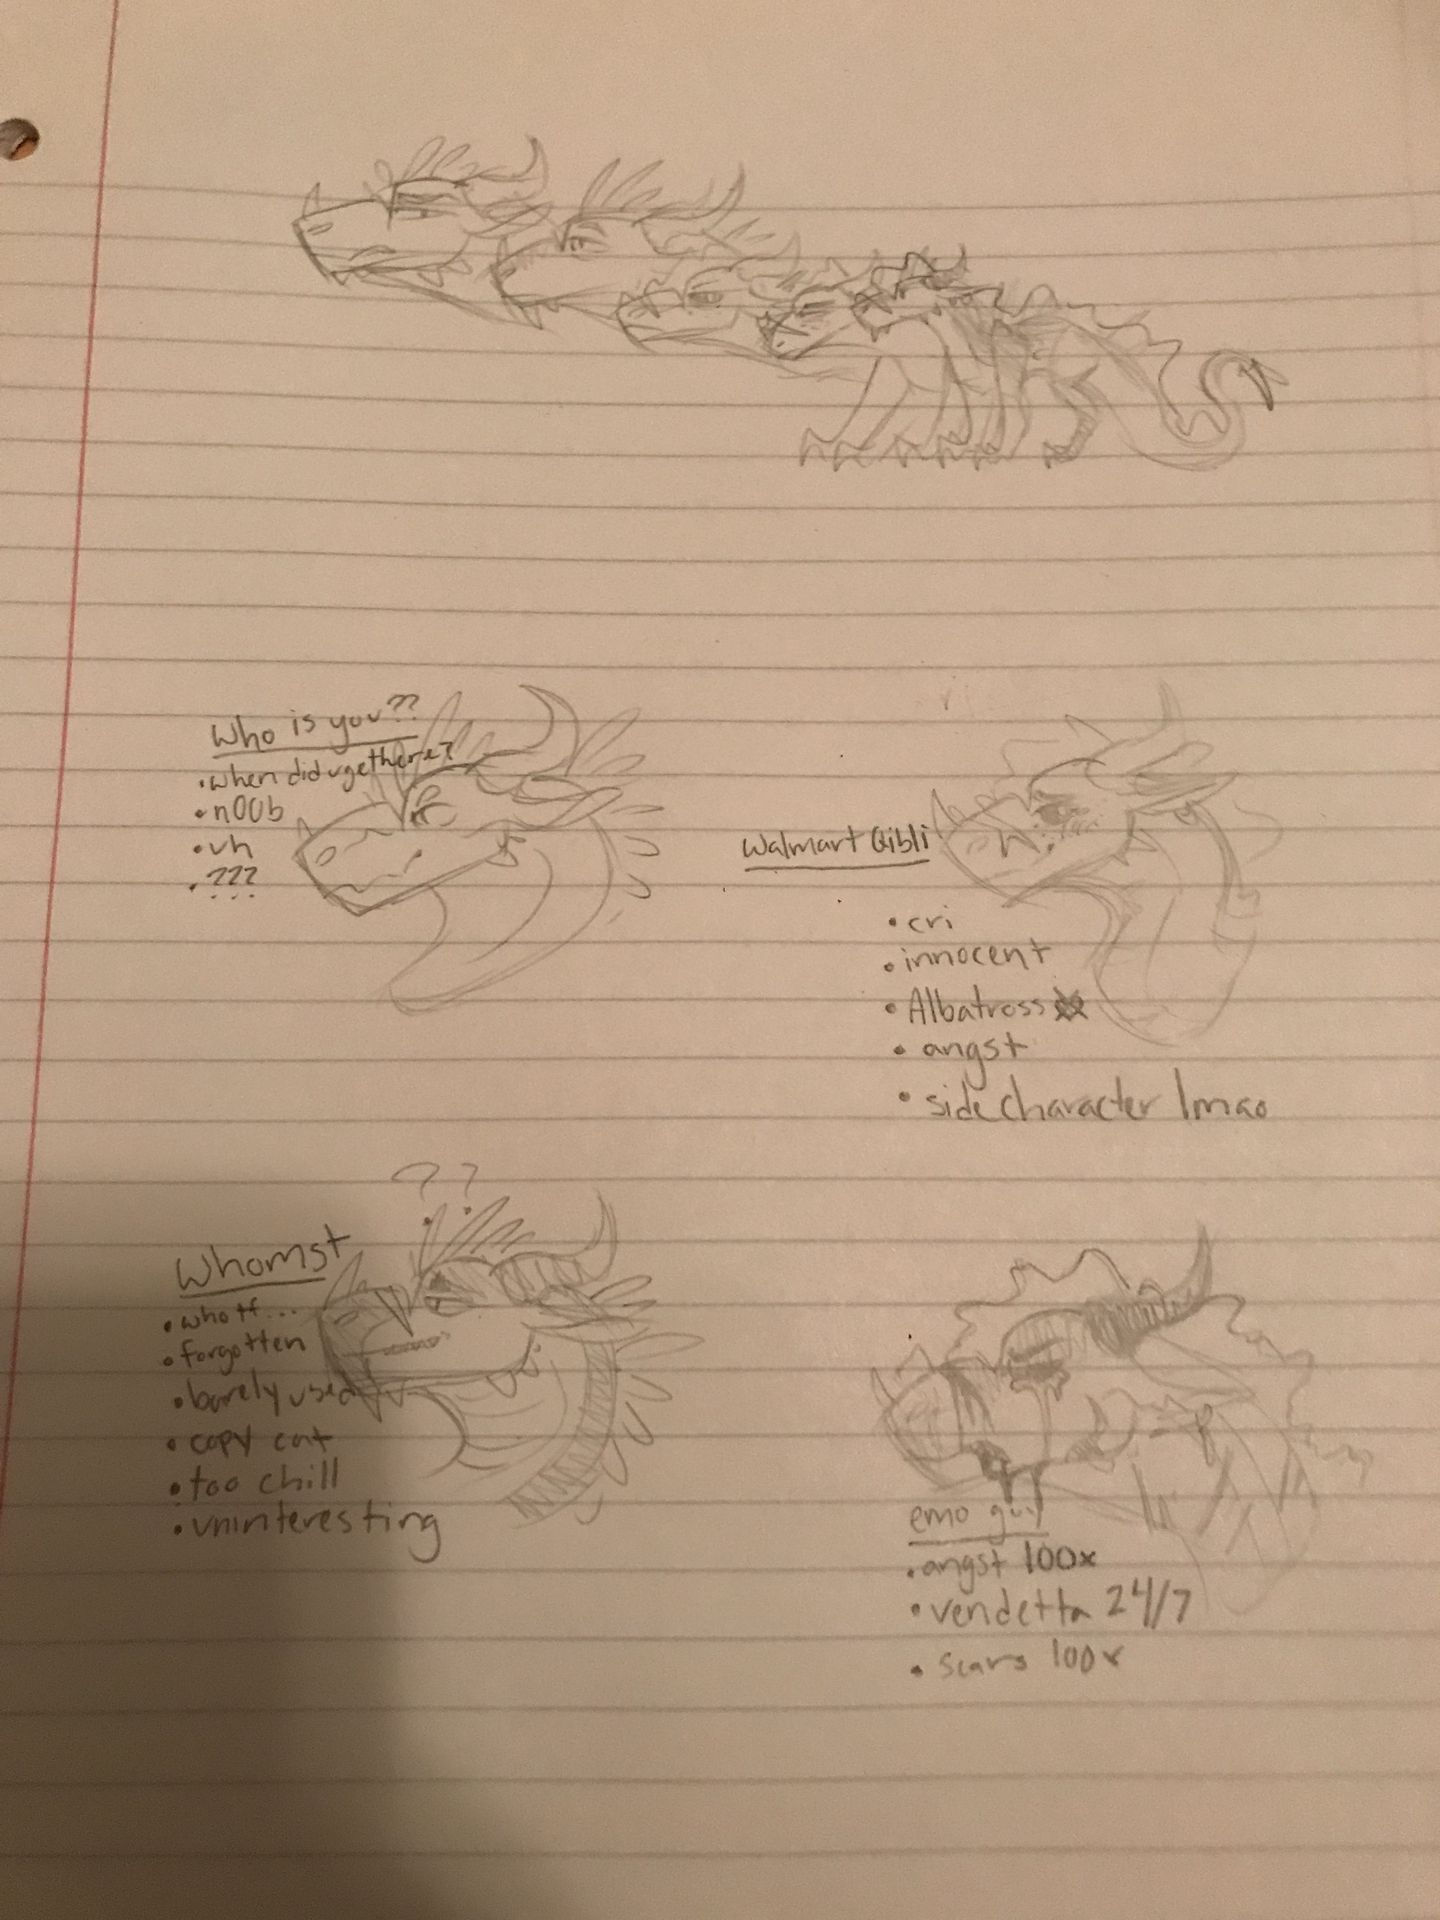 Who is you??
• when did u get there?
• n00b
• uh
• ???
Walmart Qibli
• cri
• innocent
• Albatross
• angst
• side character lmao
??
Whomst
• who tf...
• forgotten
• barely used
• copy cat
• too chill
• uninteresting
emo guy
• angst 100x
• vendetta 24/7
• scars 100x